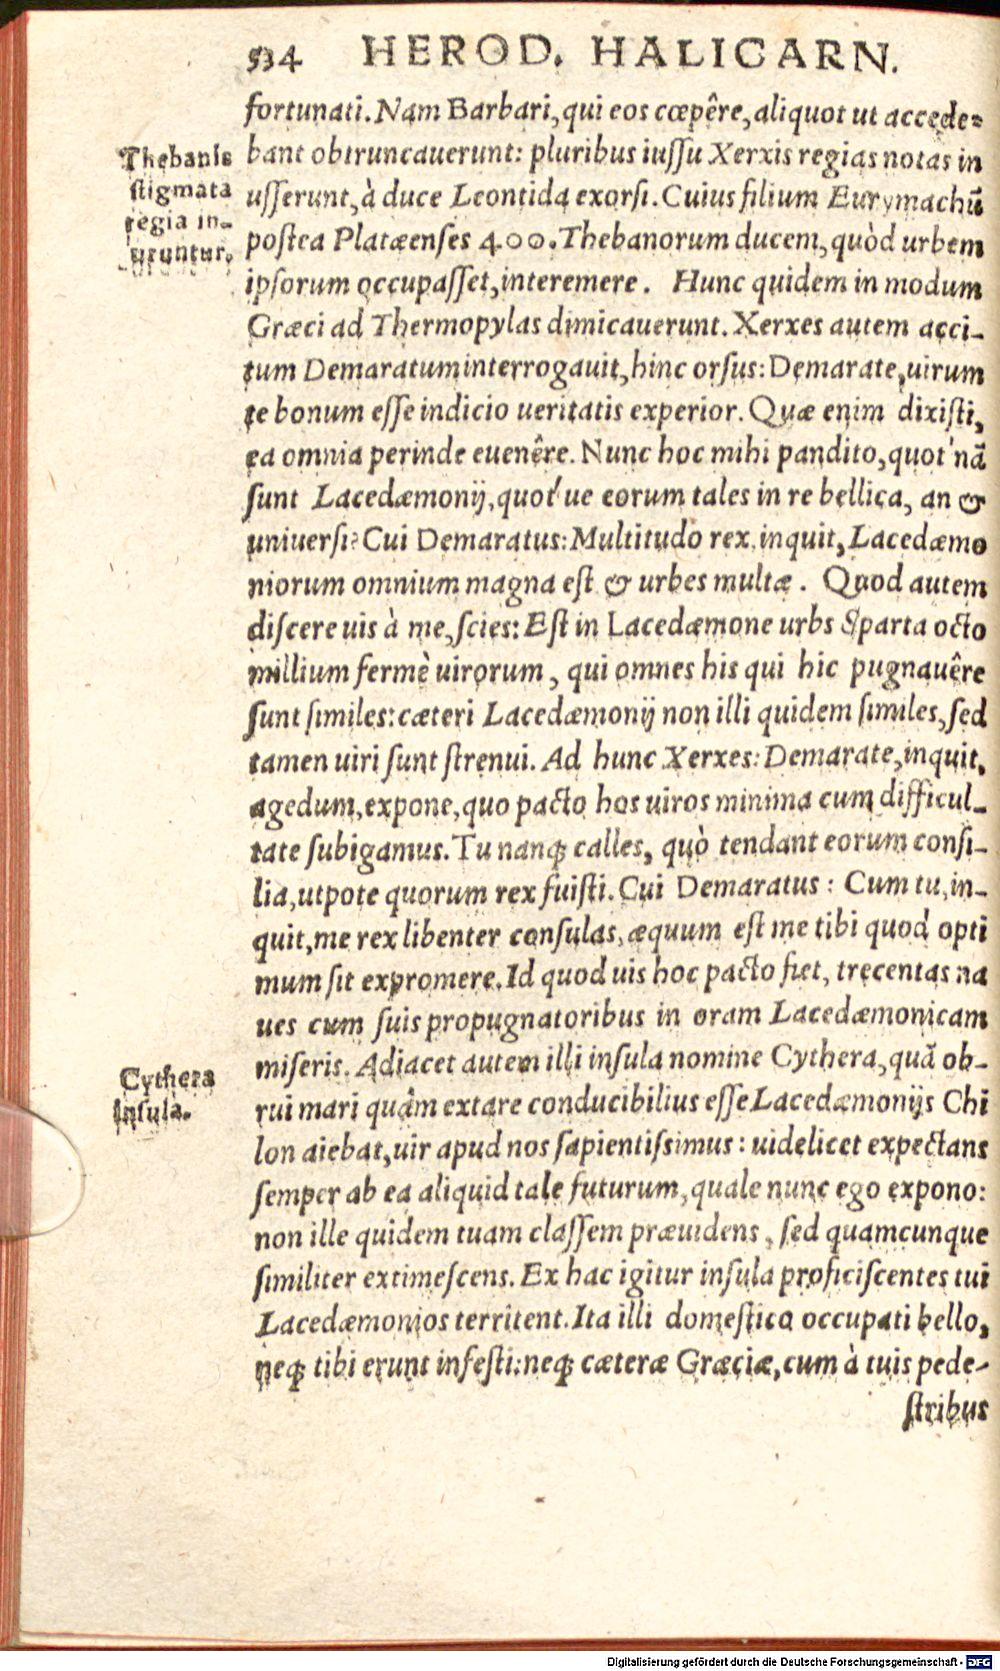 534 HEROD. HALICARN.
fortunati. Nam Barbari, qui eos cœpêre, aliquot ut accede=
bant obtruncauerunt: pluribus iuſſu Xerxis regias notas in
uſſerunt, à duce Leontida exorſi. Cuius filium Eurymachū
poſtea Platæenſes 400. Thebanorum ducem, quòd urbem
ipſorum occupaſſet, interemere. Hunc quidem in modum
Græci ad Thermopylas dimicauerunt. Xerxes autem acci-
tum Demaratum interrogauit, hinc orſus: Demarate, uirum
te bonum eſſe indicio ueritatis experior. Quæ enim dixiſti,
ea omnia perinde euenêre. Nunc hoc mihi pandito, quot'nã
ſunt Lacedæmonij, quot'ue eorum tales in re bellica, an &
uniuerſi? Cui Demaratus: Multitudo rex, inquit, Lacedæmo
niorum omnium magna eſt & urbes multæ. Quod autem
diſcere uis à me, ſcies: Eſt in Lacedæmone urbs Sparta octo
millium fermè uirorum, qui omnes his qui hic pugnauêre
ſunt ſimiles: cæteri Lacedæmonij non illi quidem ſimiles, ſed
tamen uiri ſunt ſtrenui. Ad hunc Xerxes: Demarate, inquit,
agedum, expone, quo pacto hos uiros minima cum difficul-
tate ſubigamus. Tu nanq; calles, quò tendant eorum conſi-
lia, utpote quorum rex fuiſti. Cui Demaratus: Cum tu, in-
quit, me rex libenter conſulas, æquum eſt me tibi quod opti
mum ſit expromere. Id quod uis hoc pacto fiet, trecentas na
ues cum ſuis propugnatoribus in oram Lacedæmonicam
miſeris. Adiacet autem illi inſula nomine Cythera, quã ob-
rui mari quàm extare conducibilius eſſe Lacedæmonijs Chi
lon aiebat, uir apud nos ſapientiſsimus: uidelicet expectans
ſemper ab ea aliquid tale futurum, quale nunc ego expono:
non ille quidem tuam claſſem præuidens, ſed quamcunque
ſimiliter extimeſcens. Ex hac igitur inſula proficiſcentes tui
Lacedæmonios territent. Ita illi domeſtico occupati bello,
neq; tibi erunt infeſti: neq; cæteræ Græciæ, cum à tuis pede-
ſtribus
Thebanis
ſtigmata
regia in-
uruntur.
Cythera
inſula.
Digitalisierung gefördert durch die Deutsche Forschungsgemeinschaft - DFG